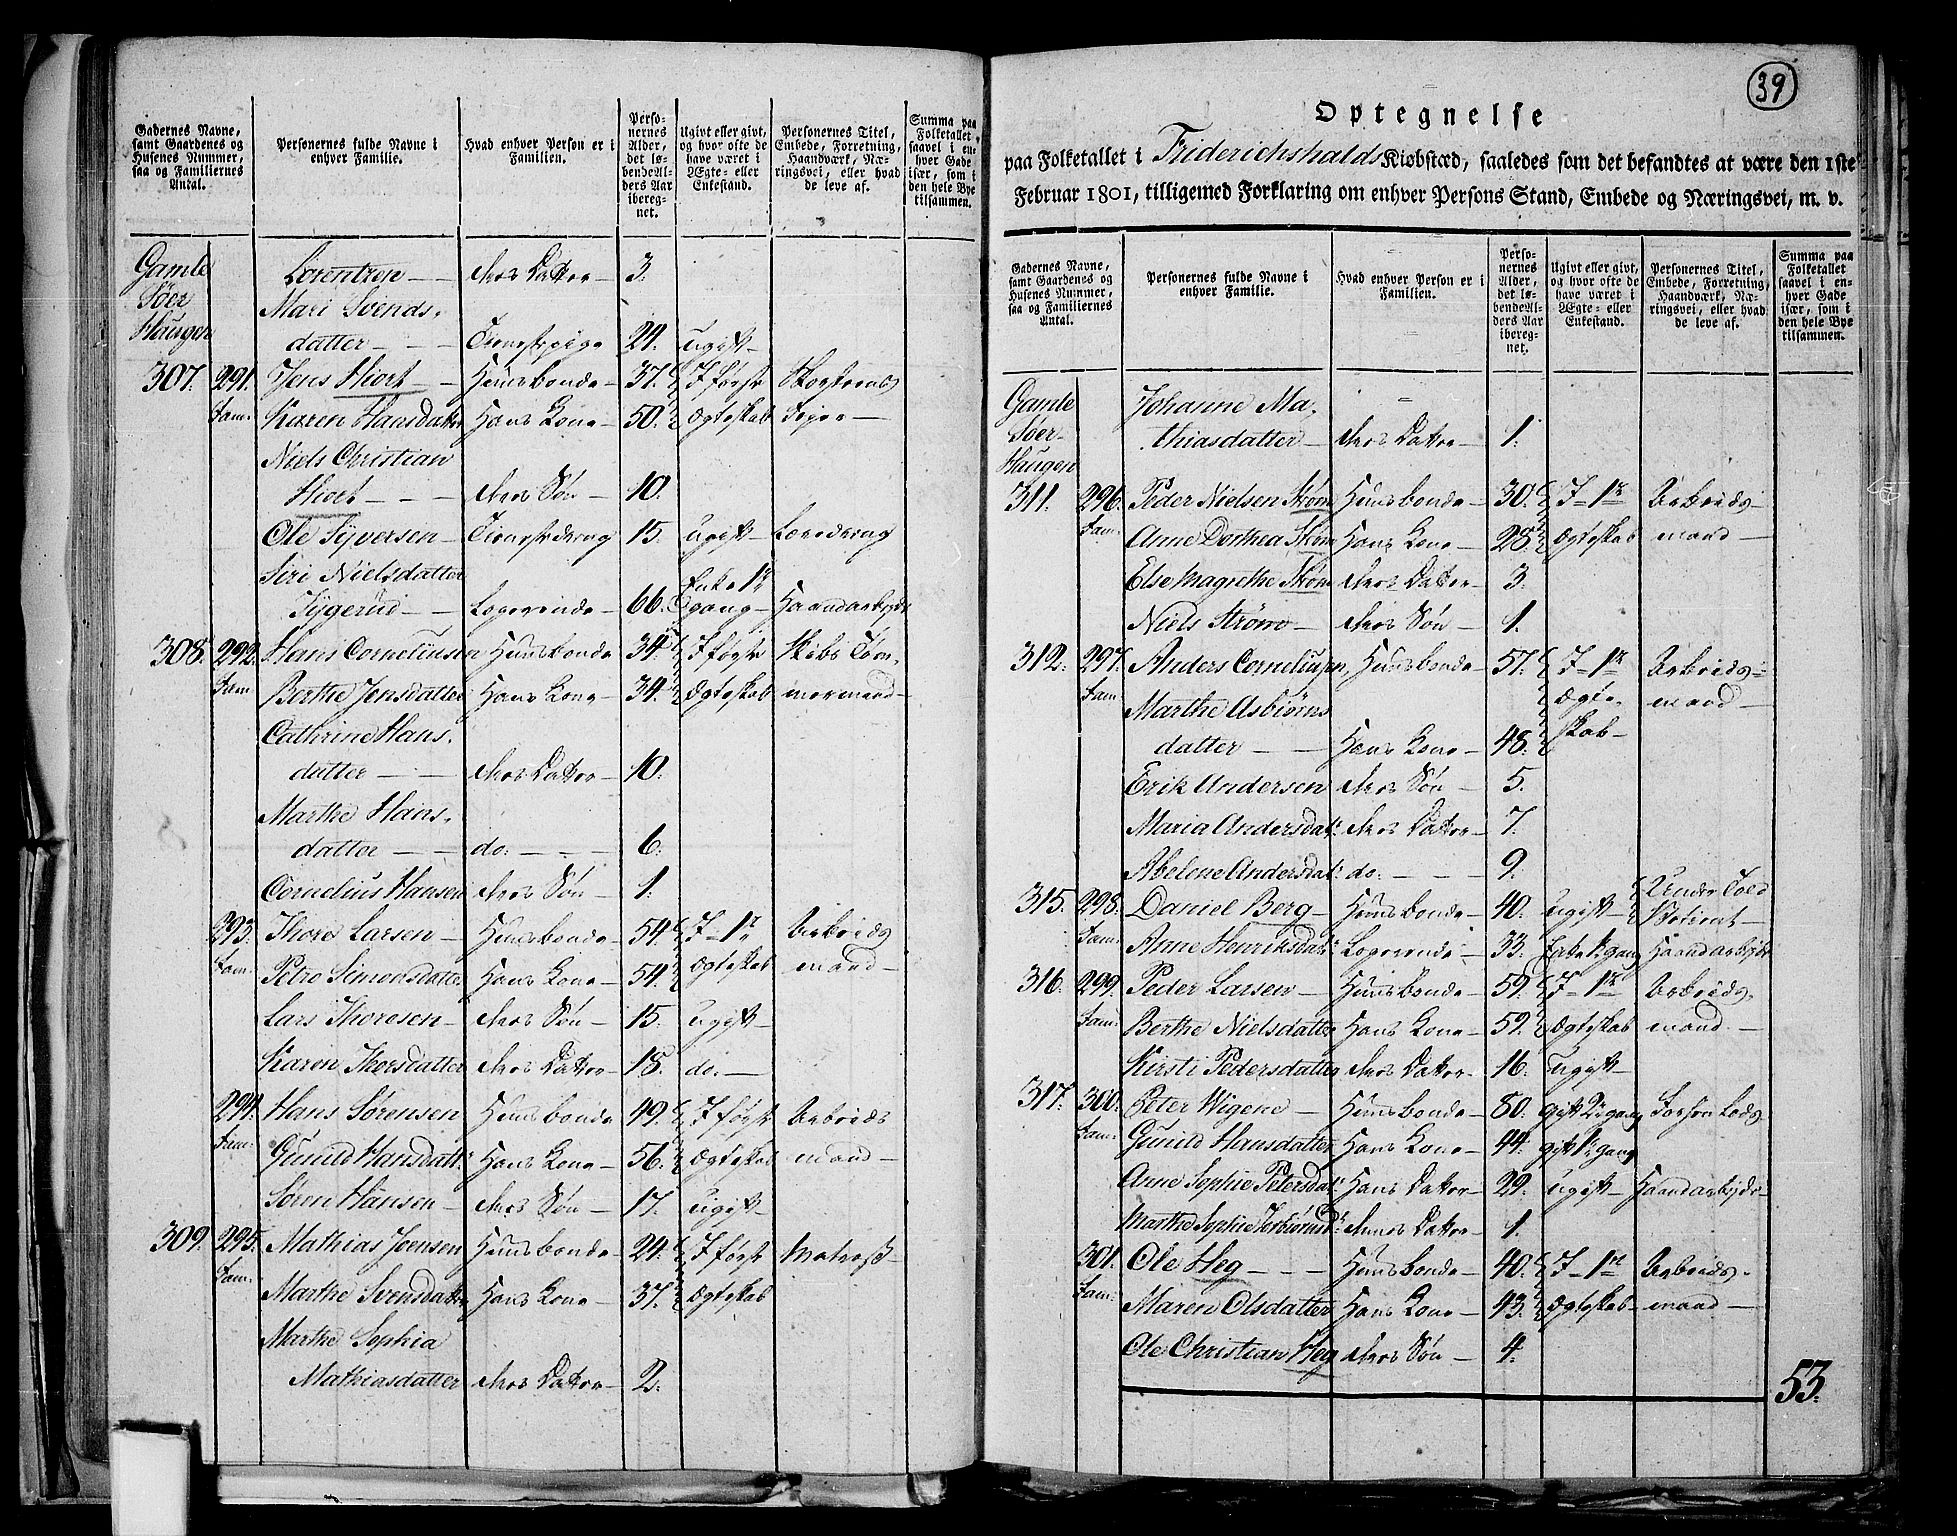 Gadernes Navne, samt Gaardenes og Husenes Nummer, saa og Familiernes Antal.
Personernes fulde Navne i enhver Familie.
Hvad enhver Person er i Familien.
Personernes Alder, det løbende Alders Aar iberegnet.
Ugivt eller givt, og hvor ofte de have været i Ægte- eller Enkestand.
Personernes Titel, Embede, Forretning, Haandværk, Næringsvei, eller hvad de leve af.
Summa paa Folketallet, saavel i enhver Gade især, som i den hele Bye tilsammen.
Gamle Søer Haugen
Lorentzen — deres Datter — 3.
Mari Svends-
datter — — Tienestepige 24. ugift —
307. 291. Fam: Jens Hiort — Huusbonde — 37. I første Skorsteens
Karen Hansdatter Hans Kone — 50. Ægteskab Feier —
Niels Christian
Hiort — — deres Søn — 10.
Ole Syversen — Tienestedreng 15. ugift — Læredreng
Siri Nielsdatter
Tygerud — Logerende — 66. Enke 1e gang — Haandarbeyde
308. 292. Fam: Hans Corneliusen Huusbonde 34. I første Skibs Tøm-
Berthe Jensdatter Hans Kone — 34. Ægteskab mermand —
Cathrine Hans-
datter — — deres Datter — 10.
Marthe Hans-
datter — — do: — — 6.
Cornelius Hansen deres Søn — 1.
293. Fam: Thore Larsen — Huusbonde — 54. I 1e Arbeids
Petro Simonsdatter Hans Kone — 54. Ægteskab mand —
Lars Thoresen — deres Søn — 15. ugift —
Karen Thorsdatter deres Datter — 18. do. —
294. Fam: Hans Sørensen Huusbonde 49. I først Arbeids
Gunild Hansdatt: Hans Kone — 56. Ægteskab mand —
Søren Hansen — deres Søn — 17. ugift —
309. 295. Fam: Mathias Joensen Huusbonde — 24. I først Matros —
Marthe Svensdatter Hans Kone — 37. Ægteskab
Marthe Sophia
Mathiasdatter deres Datter — 2.
39
Optegnelse
paa Folketallet i Friderichshalds Kiøbstæd, saaledes som det befandtes at være den 1ste
Februar 1801, tilligemed Forklaring om enhver Persons Stand, Embede og Næringsvei, m. v.
Gadernes Navne, samt Gaardenes og Husenes Nummer, saa og Familiernes Antal.
Personernes fulde Navne i enhver Familie.
Hvad enhver Person er i Familien.
Personernes Alder, det løbende Alders Aar iberegnet.
Ugivt eller givt, og hvor ofte de have været i Ægte- eller Enkestand.
Personernes Titel, Embede, Forretning, Haandværk, Næringsvei, eller hvad de leve af.
Summa paa Folketallet saavel i enhver Gade især, som i den hele Bye tilsammen.
Gamle Søer- Haugen
Johanne Ma-
thiasdatter — deres Datter — 1.
311. 296. Fam: Peder Nielsen Strøm Huusbonde — 30. I — 1e Arbeids-
Anne Dorthea Strøm Hans Kone — 28. Ægteskab mand —
Else Magrethe Strøm deres Datter — 3.
Niels Strøm — deres Søn — 1.
312. 297. Fam: Anders Corneliusen Huusbonde — 57. I — 1e Arbeids-
Marthe Asbiørns Ægte- mand —
datter — — Hans Kone — 48. skab —
Erik Andersen deres Søn — 5.
Maria Andersdat: deres Datter — 7.
Abelone Andersdat: do: — — 9.
315. 298. Fam: Daniel Berg — Huusbonde — 40. ugift — Under Told Betient —
Anne Henriksdat: Logerende 33. Enke 1e gang Haandarbeyde
316. 299. Fam: Peder Larsen — Huusbonde — 59. I — 1e Arbeids-
Berthe Nielsdatter Hans Kone — 52. Ægteskab mand —
Kirsti Pedersdatter deres Datter — 16. ugift —
317. 300. Fam: Peter Wigene — Huusbonde — 80. gift 2e gang
Gunild Hansdatter Hans Kone — 44. gift 1e gang
Anne Sophie Petersdat: Hans Datter — 29. ugift — Haandarbeyde —
Marthe Sophie Torbiørnsd: Annes Datter — 1.
301. Fam: Ole Heg — — Huusbonde — 40. I — 1e Arbeids-
Maren Olsdatter Hans Kone — 43. Ægteskab — mand —
Ole Christian Heg deres Søn — 4.
53.